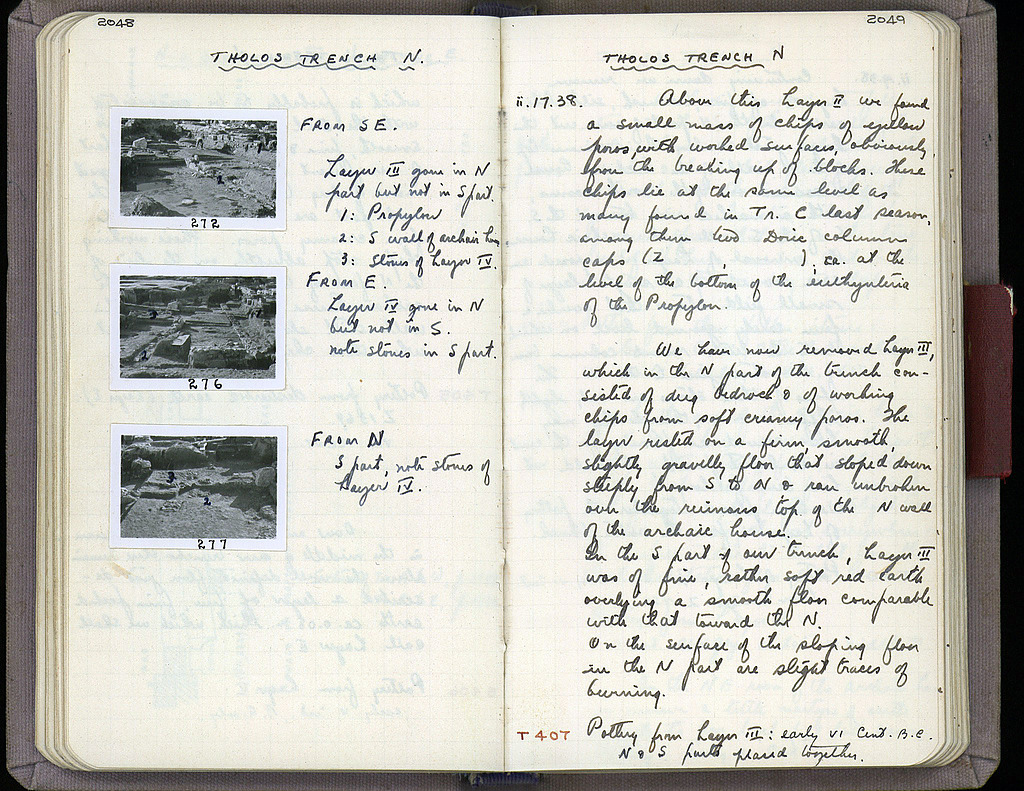 2048
THOLOS TRENCH N.
FROM SE.
Layer III gone in N
part but not in S part.
1: Propylon
2: S wall of archaic house
3: Stones of Layer IV.
272
FROM E.
Layer IV gone in N
but not in S.
note stones in S part.
276
FROM N
S part, note stones of
Layer IV.
277
2049
THOLOS TRENCH N
ii.17.38. Above this Layer II we found
a small mass of chips of yellow
poros with worked surfaces, obviously
from the breaking up of blocks. These
chips lie at the same level as
many found in Tr. C last season,
among them two Doric column
caps (Z , ), ca. at the
level of the bottom of the euthynteria
of the Propylon.
We have now removed Layer III,
which in the N part of the trench con-
sisted of dug bedrock & of working
chips from soft creamy poros. The
layer rested on a firm, smooth,
slightly gravelly floor that sloped down
steeply from S to N & ran unbroken
over the ruinous top of the N wall
of the archaic house.
In the S part of our trench, Layer III
was of fine, rather soft red earth
overlying a smooth floor comparable
with that toward the N.
On the surface of the sloping floor
in the N part are slight traces of
burning.
T 407 Pottery from Layer III: early VI Cent. B.C.
N & S parts placed together.